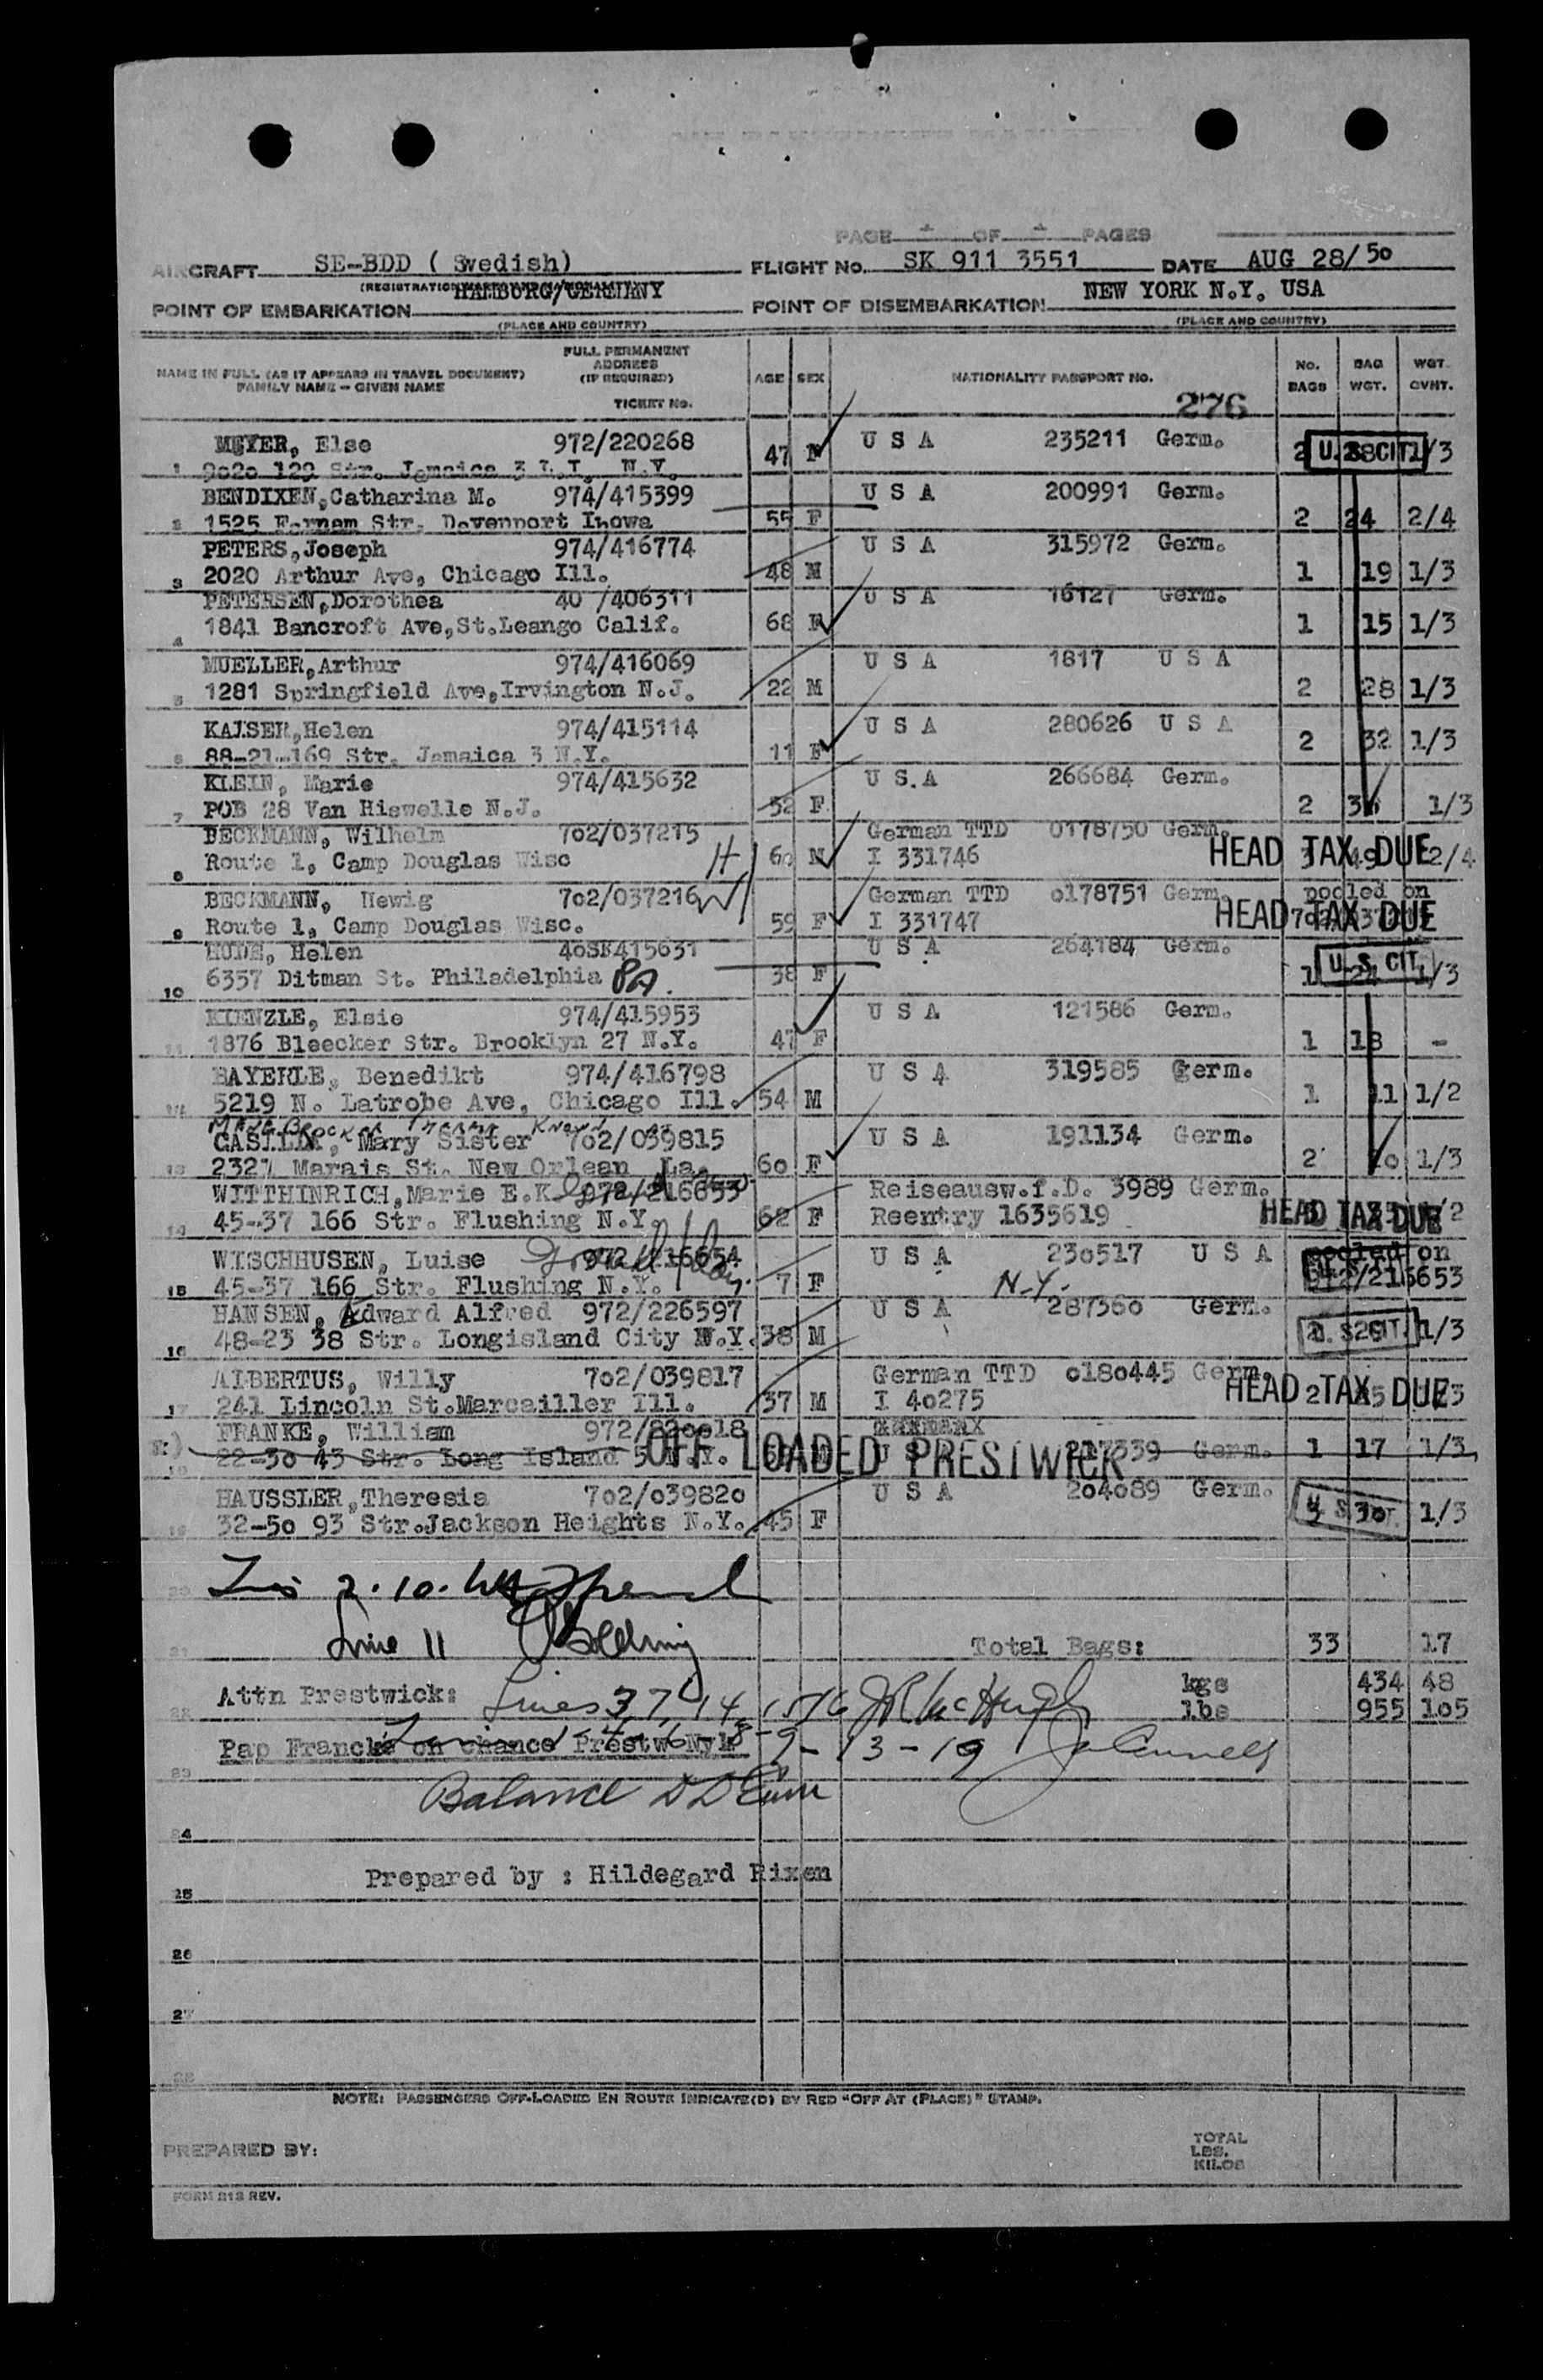 PAGE 1 OF 1 PAGES
AIRCRAFT SE-BDD ( Swedish) FLIGHT No. SK 911 3551 DATE AUG 28/50
HAMBURG/GERMANY NEW YORK N.Y. USA
POINT OF EMBARKATION POINT OF DISEMBARKATION
(PLACE AND COUNTRY) (PLACE AND COUNTRY)
NAME IN FULL (AS IT APPEARS IN TRAVEL DOCUMENT) FAMILY NAME - GIVEN NAME
FULL PERMANENT ADDRESS (IF REQUIRED) TICKET No.
AGE SEX NATIONALITY PASSPORT NO. No. BAGS BAG WGT. WGT. OVHT.
276
MEYER, Else 972/220268 U S A 235211 Germ.
1 9o2o 129 Str. Jamaica 3 L.I. N.Y. 47 F 2 U.S. CIT 1/3
BENDIXEN,Catharina M. 974/415399 U S A 200991 Germ.
2 1525 Farnam Str. Davenport Ihowa 55 F 2 24 2/4
PETERS,Joseph 974/416774 U S A 315972 Germ.
3 2020 Arthur Ave, Chicago Ill. 48 M 1 19 1/3
PETERSEN,Dorothea 40 /406311 U S A 16127 Germ.
4 1841 Bancroft Ave,St.Leango Calif. 68 F 1 15 1/3
MUELLER,Arthur 974/416069 U S A 1817 U S A
5 1281 Springfield Ave,Irvington N.J. 22 M 2 28 1/3
KAISER,Helen 974/415114 U S A 280626 U S A
6 88-21-169 Str. Jamaica 3 N.Y. 11 F 2 32 1/3
KLEIN, Marie 974/415632 U S.A 266684 Germ.
7 POB 28 Van Hiswelle N.J. 52 F 2 1/3
BECKMANN, Wilhelm 7o2/037215 German TTD 0178750 Germ.
8 Route 1, Camp Douglas Wisc 60 M I 331746 HEAD TAX DUE 2/4
BECKMANN, Hewig 7o2/037216 German TTD o178751 Germ. pooled on
9 Route 1, Camp Douglas Wisc. 59 F I 331747 HEAD TAX DUE
HODE, Helen 4oSK415631 U S A 264184 Germ.
10 6357 Ditman St. Philadelphia PA. 38 F 1 U.S. CIT. 1/3
KIENZLE, Elsie 974/415953 U S A 121586 Germ.
11 1876 Bleecker Str. Brooklyn 27 N.Y. 47 F 1 18 -
BAYERLE, Benedikt 974/416798 U S A 319585 Germ.
5219 N. Latrobe Ave, Chicago Ill. 54 M 1 11 1/2
Mary Sister 7o2/039815 U S A 191134 Germ.
13 2327 Marais St. New Orlean La. 60 F 2 1/3
WITTHINRICH,Marie E.K. 972/216653 Reiseausw.f.D. 3989 Germ.
14 45-37 166 Str. Flushing N.Y. 62 F Reentry 1635619 HEAD TAX DUE 2
WISCHHUSEN, Luise 972/216654 U S A 23o517 U S A pooled on
15 45-37 166 Str. Flushing N.Y. 7 F N.Y. 972/216653
HANSEN, Edward Alfred 972/226597 U S A 28736o Germ.
16 48-23 38 Str. Longisland City N.Y. 38 M U.S. CIT. 1/3
ALBERTUS, Willy 7o2/039817 German TTD o18o445 Germ.
17 241 Lincoln St.Marcailler Ill. 37 M I 4o275 HEAD TAX DUE
FRANKE, William
22-3o 43 Str. Long Island 5 N.Y. OFF LOADED PRESTWICK U S A 217339 Germ. 1 17 1/3
HAUSSLER,Theresia 7o2/o3982o U S A 2o4o89 Germ.
19 32-5o 93 Str.Jackson Heights N.Y. 45 F 1/3
20
Line 11
21 Total Bags: 33 17
Attn Prestwick: kgs 434 48
22 Lines 3, 7, 14, 15, 16 lbs 955 1o5
23
Balance
24
Prepared by : Hildegard Rixen
25
26
27
28
NOTE: PASSENGERS OFF-LOADED EN ROUTE INDICATE(D) BY RED "OFF AT (PLACE)" STAMP.
PREPARED BY: TOTAL LBS. KILOS
FORM 212 REV.